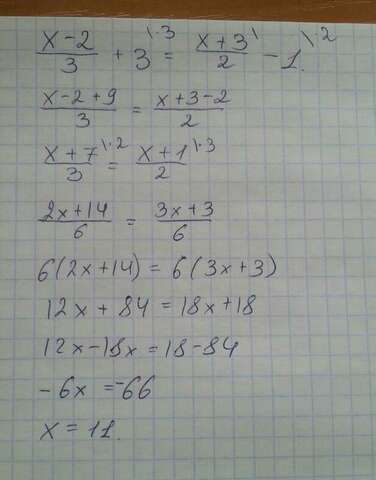 (x-2)/3 + 3\·3 = (x+3\)/2 - 1\·2.
(x-2+9)/3 = (x+3-2)/2
(x+7)/3\·2 = (x+1)/2\·3
(2x+14)/6 = (3x+3)/6
6(2x+14) = 6(3x+3)
12x + 84 = 18x+18
12x-18x = 18-84
-6x = -66
x = 11.